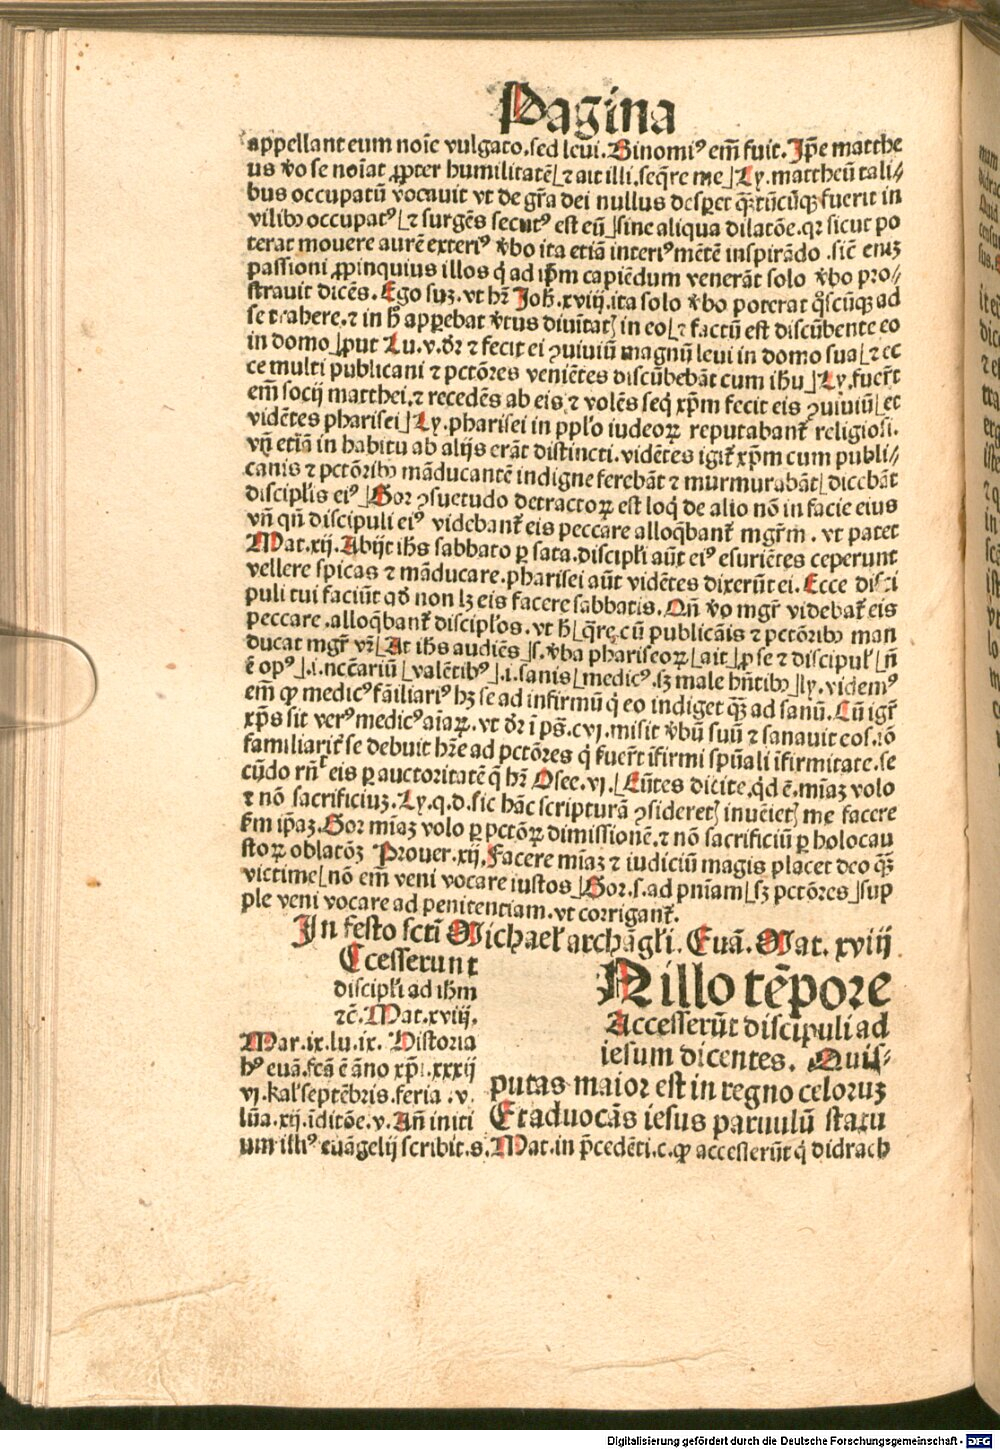 Pagina
appellant eum noīe vulgato.sed leui. Binomiꝰ em̄ fuit. Ip̄e matthe
us ꝟo se noīat ꝓpter humilitatē⌊⁊ ait illi.seq̄re me⌋Ly.mattheū tali⸗
bus occupatū vocauit vt de gr̄a dei nullus desperet q̄ꝫtūcūqꝫ fuerit in
vilibꝰ occupatꝰ⌊⁊ surgēs secutꝰ est eū⌋sine aliqua dilatōe.qꝛ sicut po
terat mouere aurē exteriꝰ ꝟbo ita etiā interiꝰ mētē inspirādo .sic̄ eniꝫ
passioni ꝓpinquius illos q̇ ad ip̄m capiēdum venerāt solo ꝟbo pro⸗
strauit dicēs. Ego suꝫ.vt hꝛ̄ Joh̄.xviij.ita solo ꝟbo poterat q̇scūqꝫ ad
se trahere.⁊ in h̄ apparebat ꝟtus diuītatꝭ in eo⌊⁊ factū est discūbente eo
in domo⌋ꝓut Lu.v.dꝛ̄ ⁊ fecit ei ꝯuiuiū magnū leui in domo sua⌊⁊ ec
ce multi publicani ⁊ pctōres veniētes discūbebāt cum ih̄u⌋Ly.fuer̄t
em̄ socij matthei.⁊ recedēs ab eis ⁊ volēs seq̇ xp̄m fecit eis ꝯuiuiū⌊et
vidētes pharisei⌋Ly.pharisei in ppl̄o iudeoꝝ reputabant᷑ religiosi.
vn̄ etiā in habitu ab alijs erāt distincti.vidētes igit᷑ xp̄m cum publi⸗
canis ⁊ pctōribꝰ māducantē indigne ferebāt ⁊ murmurabāt⌊dicebāt
discipl̄is eiꝰ⌋Gor ꝯsuetudo detractoꝝ est loq̇ de alio nō in facie eius
vn̄ qn̄ discipuli eiꝰ videbant᷑ eis peccare alloq̄bant᷑ mgr̄m . vt patet
Mat.xij.Abijt ih̄s sabbato ꝑ sata.discipl̄i aūt eiꝰ esuriētes ceperunt
vellere spicas ⁊ māducare.pharisei aūt vidētes dixerūt ei. Ecce disci
puli tui faciūt qd̄ non lꝫ eis facere sabbatis. Qn̄ ꝟo mgr̄ videbat᷑ eis
peccare .alloq̄bant᷑ discipl̄os.vt h̄⌊q̄re cū publicāis ⁊ pctōribꝰ man
ducat mgr̄ vꝛ̄⌊At ih̄s audiēs⌋s.ꝟba phariseoꝝ⌊ait⌋ꝓ se ⁊ discipul̄⌊n̄
ē opꝰ⌋.i.nccēariū⌊valētibꝰ⌋.i.sanis⌊medicꝰ.sꝫ male hn̄tibꝰ⌋ly.videmꝰ
em̄ ꝙ medicꝰ fāiliariꝰ hꝫ se ad infirmū q̇ eo indiget q̄ꝫ ad sanū. Cū igr̄
xp̄s sit verꝰ medicꝰ aīaꝝ. vt dꝛ̄ ī ps̄.cvj.misit ꝟbū suū ⁊ sanauit eos.iō
familiarit᷑ se debuit hr̄e ad pctōres q̇ fuer̄t īfirmi spūali īfirmitate.se
cūdo rn̄ꝰ eis ꝑ auctoritatē q̄ hꝛ̄ Osee.vj.⌊Eūtes dicite.q̇d ē.mīaꝫ volo
⁊ nō sacrificiuꝫ. Ly.q.d.sic hāc scripturā ꝯsideretꝭ inuēietꝭ me facere
ẜm ip̄aꝫ. Gor mīaꝫ volo ꝑ pctōꝝ dimissionē.⁊ nō sacrificiū ꝑ holocau
stoꝝ oblatōꝫ Prouer.xij.Facere mīaꝫ ⁊ iudiciū magis placet deo q̄ꝫ
victime⌊nō em̄ veni vocare iustos⌋Gor.s.ad pn̄iam⌊sꝫ pctōres⌋sup
ple veni vocare ad penitentiam.vt corrigant᷑.
In festo sctī Michael̄ archāgl̄i. Euā. Mat. xviij
Ccesserunt
discipl̄i ad ih̄m
⁊c̄. Mat.xviij.
Mar.ix.lu.ix. Historia
hꝰ euā.fcā ē āno xp̄i.xxxij
vj.kal̄ septēbris.feria .v.
lūa.xij.īditōe.v. An̄ initi
um illiꝰ euāgelij scribit.s. Mat.in p̄cedēti.c.ꝙ accesserūt q̇ didrach
N illo tēpore
Accesserūt discipuli ad
iesum dicentes. Quis⸗
putas maior est in regno celoruꝫ
Et aduocās iesus paruulū statu